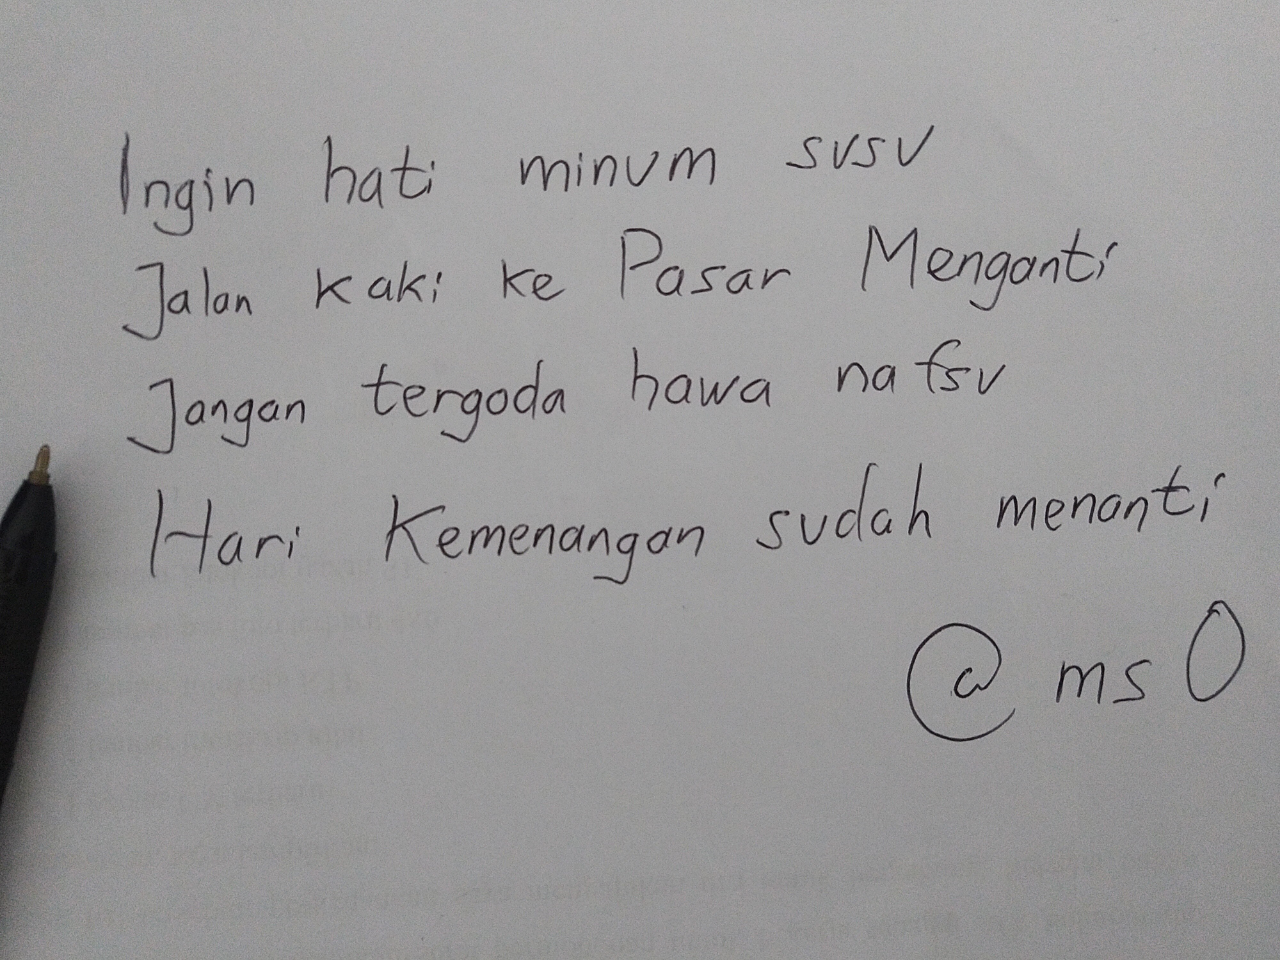 Ingin hati minum susu
Jalan kaki ke Pasar Menganti
Jangan tergoda hawa nafsu
Hari Kemenangan sudah menanti
@ms0